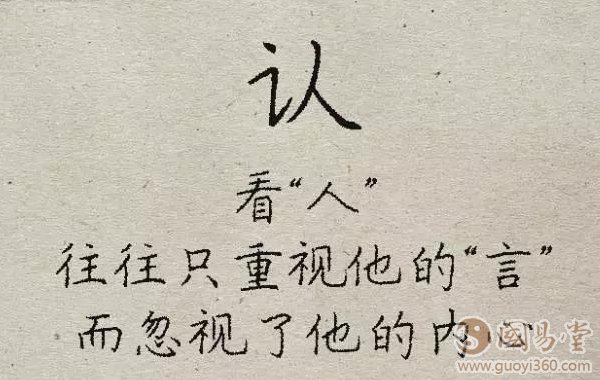 认
看“人”
往往只重视他的“言”
而忽视了他的内心
國易堂
www.guoyi360.com